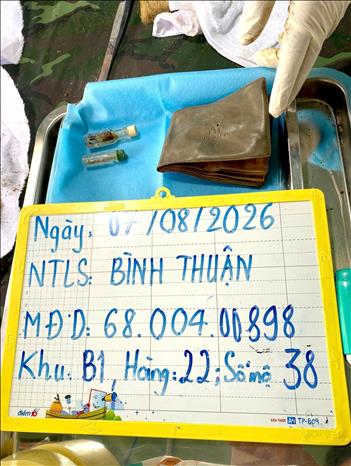 Ngày: 07/08/2026
NTLS: BÌNH THUẬN
MĐD: 68.004.00898
Khu: B1 Hàng: 22; Số mộ 38
điểm10
TP-B09